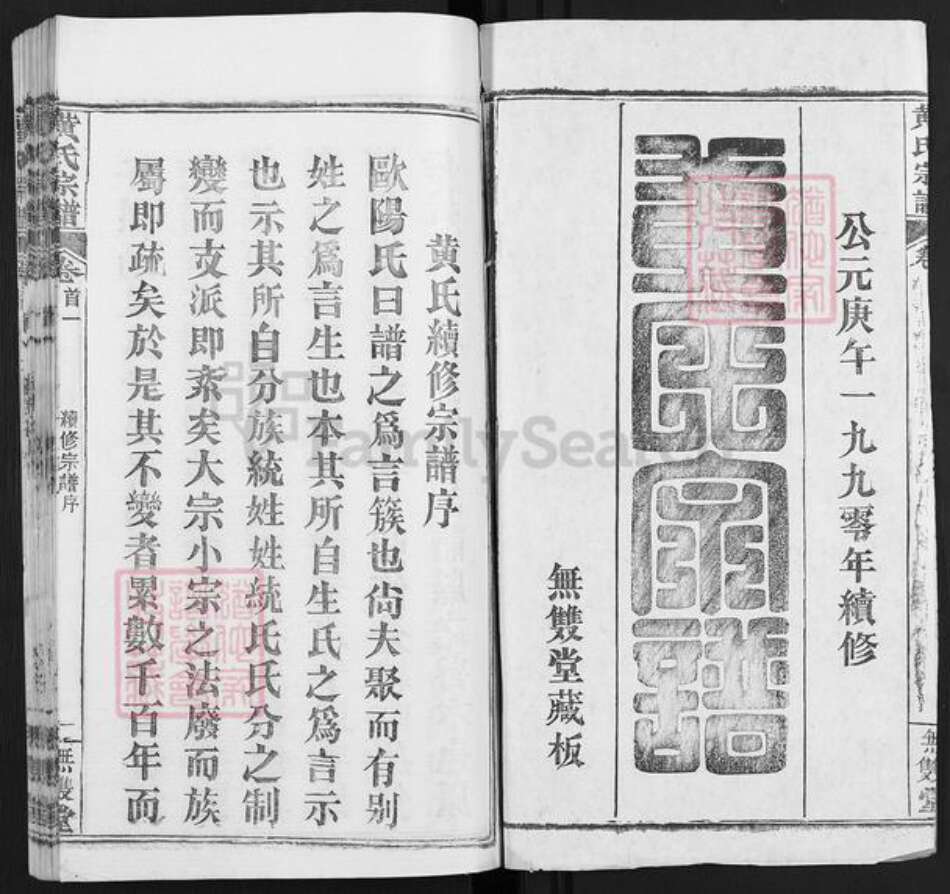 公元庚午一九九零年續修
黃氏宗譜
無雙堂藏板
黃氏宗譜
無雙堂
黃氏續修宗譜序
歐陽氏曰譜之爲言簇也尙夫聚而有别
姓之爲言生也本其所自生氏之爲言示
也示其所自分族統姓姓統氏氏分之制
變而支派即紊矣大宗小宗之法廢而族
屬即疏矣於是其不變者累數千百年而
黃氏宗譜
卷首一
續修宗譜序
二
無雙堂
FamilySearch